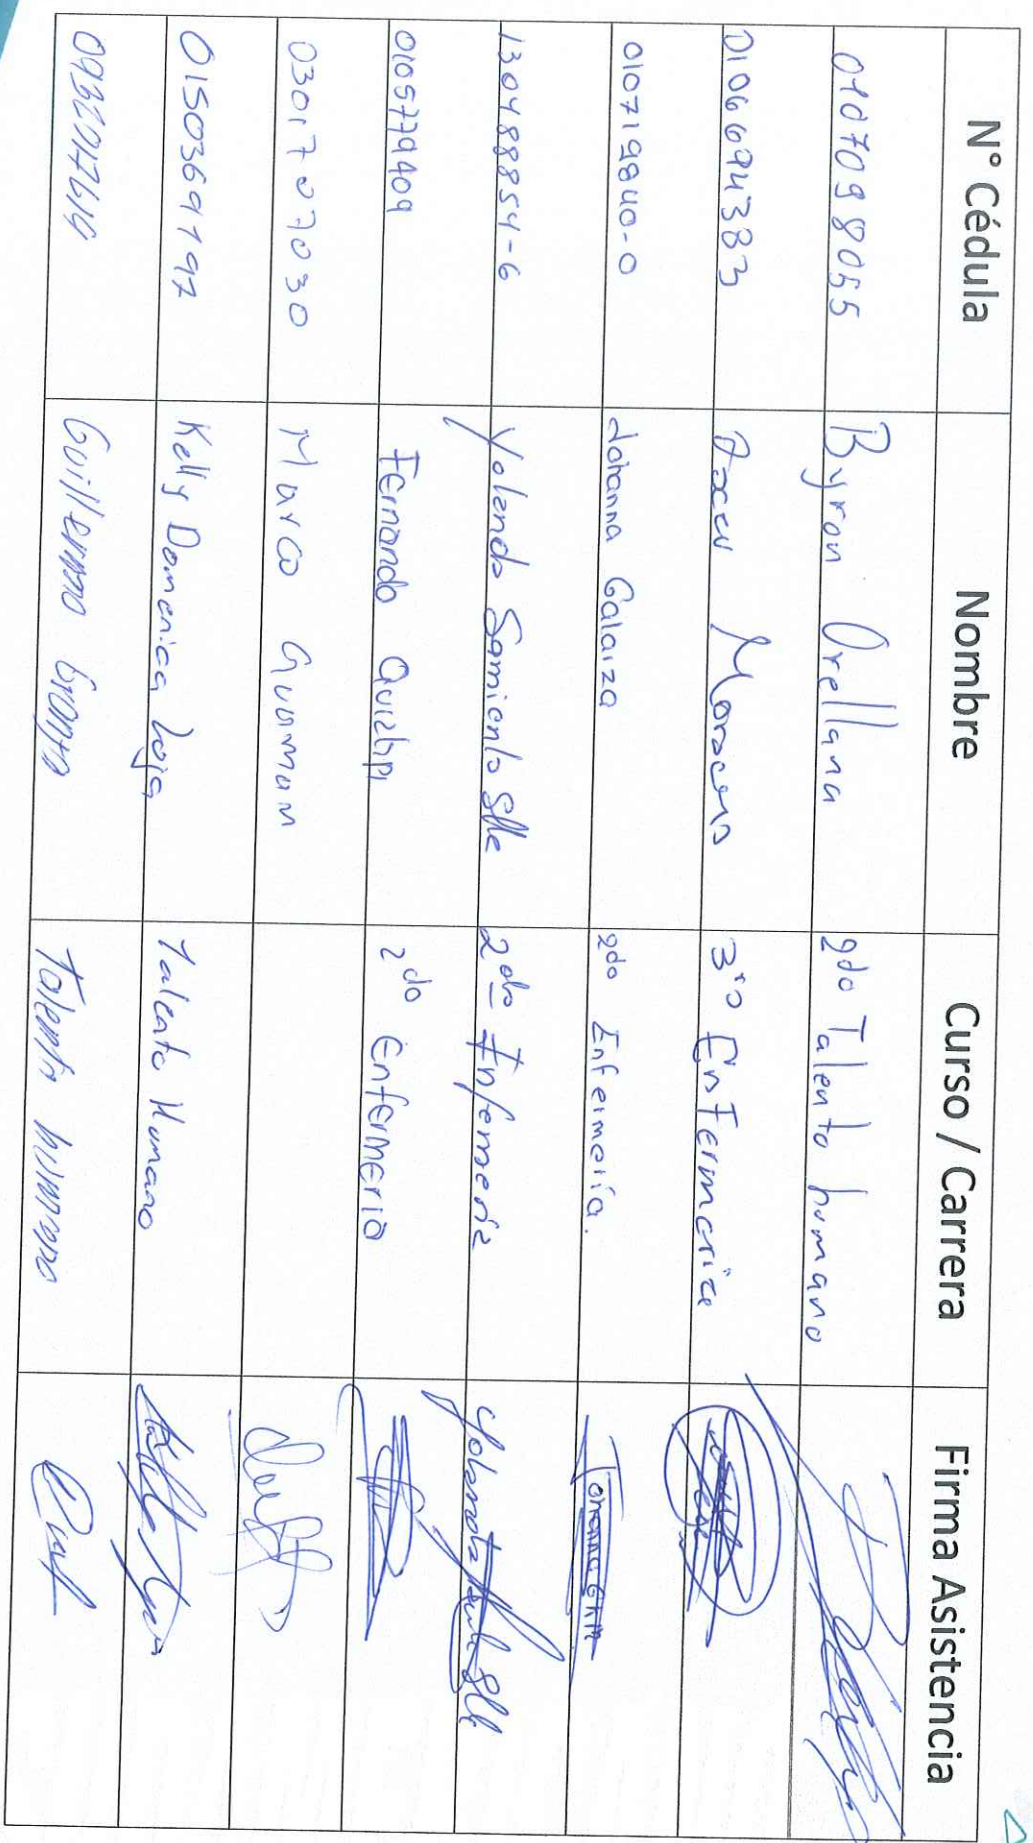 N° Cédula Nombre Curso / Carrera Firma Asistencia
0107098055 Byron Orellana 2do Talento humano
0106694383 3ro Enfermeria
010719840-0 Johanna Galarza 2do Infermería.
130488854-6 Yolanda Sarmiento 2do Infermeria
0105779409 Fernando Quizhpi 2do Enfermeria
0301707030 Marco Guaman
0150369797 Kelly Domenica Loja Talento Humano
0932017614 Guillermo Talento humano